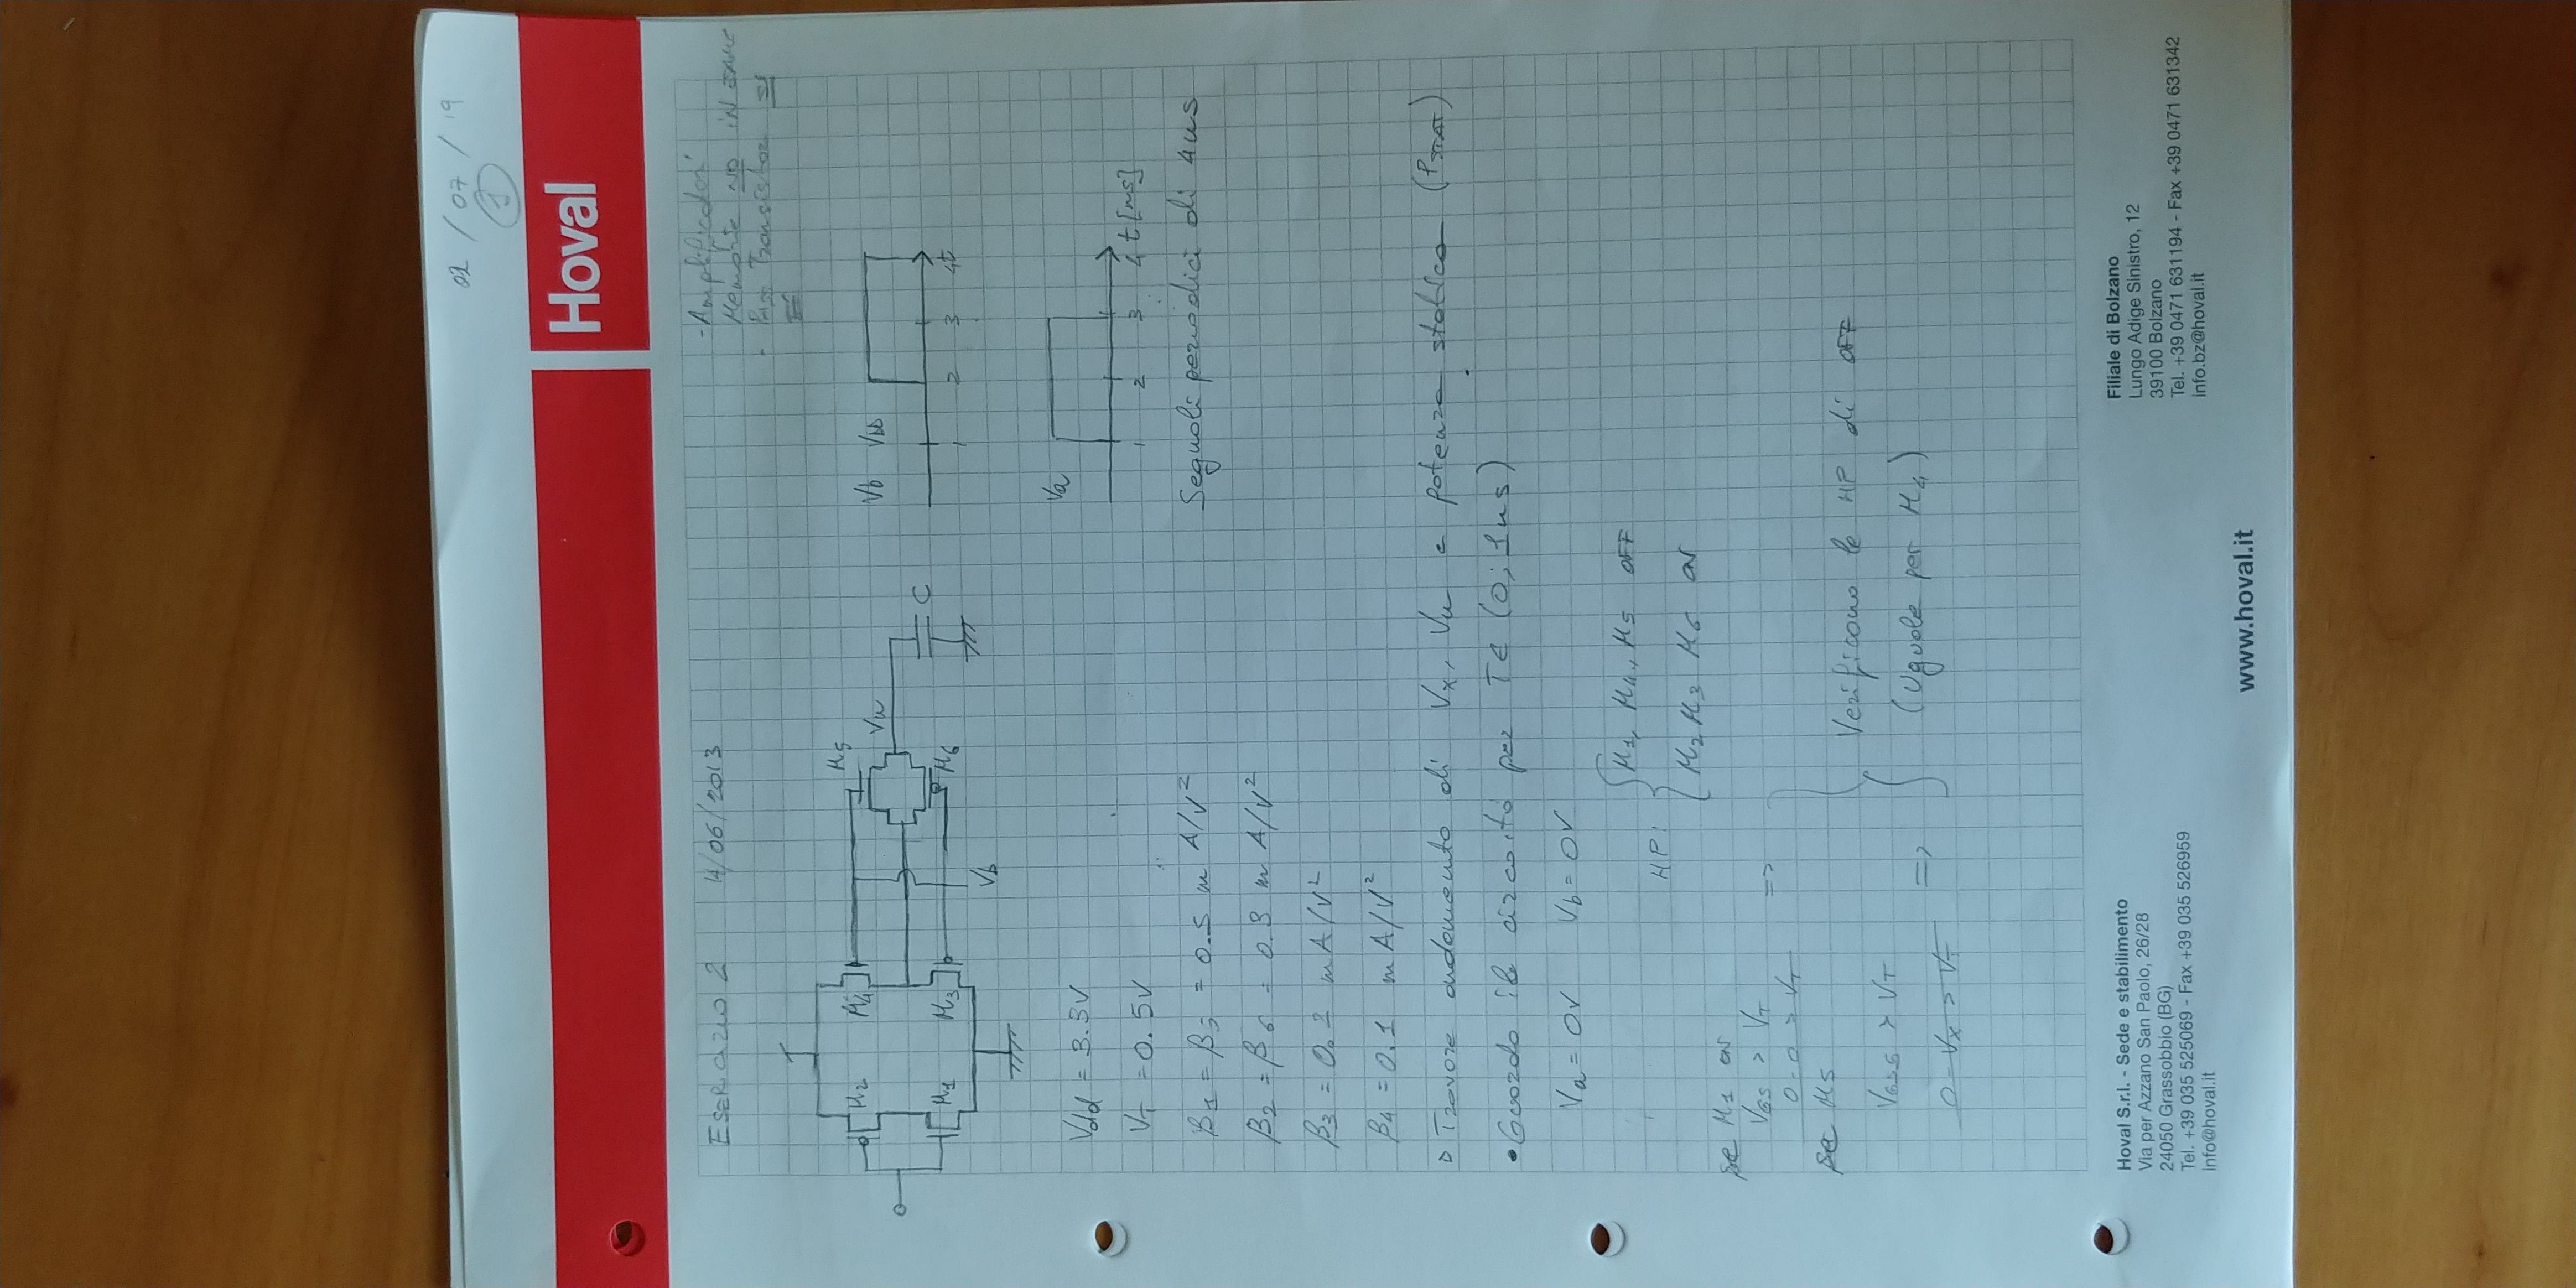 02 / 07 / 19
1
Hoval
ESERCIZIO 2 14/06/2013
- Amplificatori
Memorie NO IN
- Pass Transistor SI
M5
M2
M4
Vu
Vb Vdd
C
M1
M3
M6
Vb
1 2 3 4 t
Vdd = 3.3V
Va
VT = 0.5V
1 2 3 4 t[ms]
β1 = β5 = 0.5 m A/V²
Segnali periodici di 4ms
β2 = β6 = 0.3 m A/V²
β3 = 0.2 mA/V²
β4 = 0.1 mA/V²
▷ Trovare andamento di Vx, Vu e potenza statica (PSTAT)
• Guardo il circuito per T∈ (0; 1ms)
Va = 0V Vb = 0V
HP: M1, M4, M5 OFF
M2 M3 M6 ON
se M1 on
VGS > VT =>
0-0 > VT
se M5
Verificano le HP di OFF
VGS5 > VT
(Uguale per M4)
=>
0-Vx > VT
Hoval S.r.l. - Sede e stabilimento
Via per Azzano San Paolo, 26/28
24050 Grassobbio (BG)
Tel. +39 035 525069 - Fax +39 035 526959
info@hoval.it
Filiale di Bolzano
Lungo Adige Sinistro, 12
39100 Bolzano
Tel. +39 0471 631194 - Fax +39 0471 631342
info.bz@hoval.it
www.hoval.it